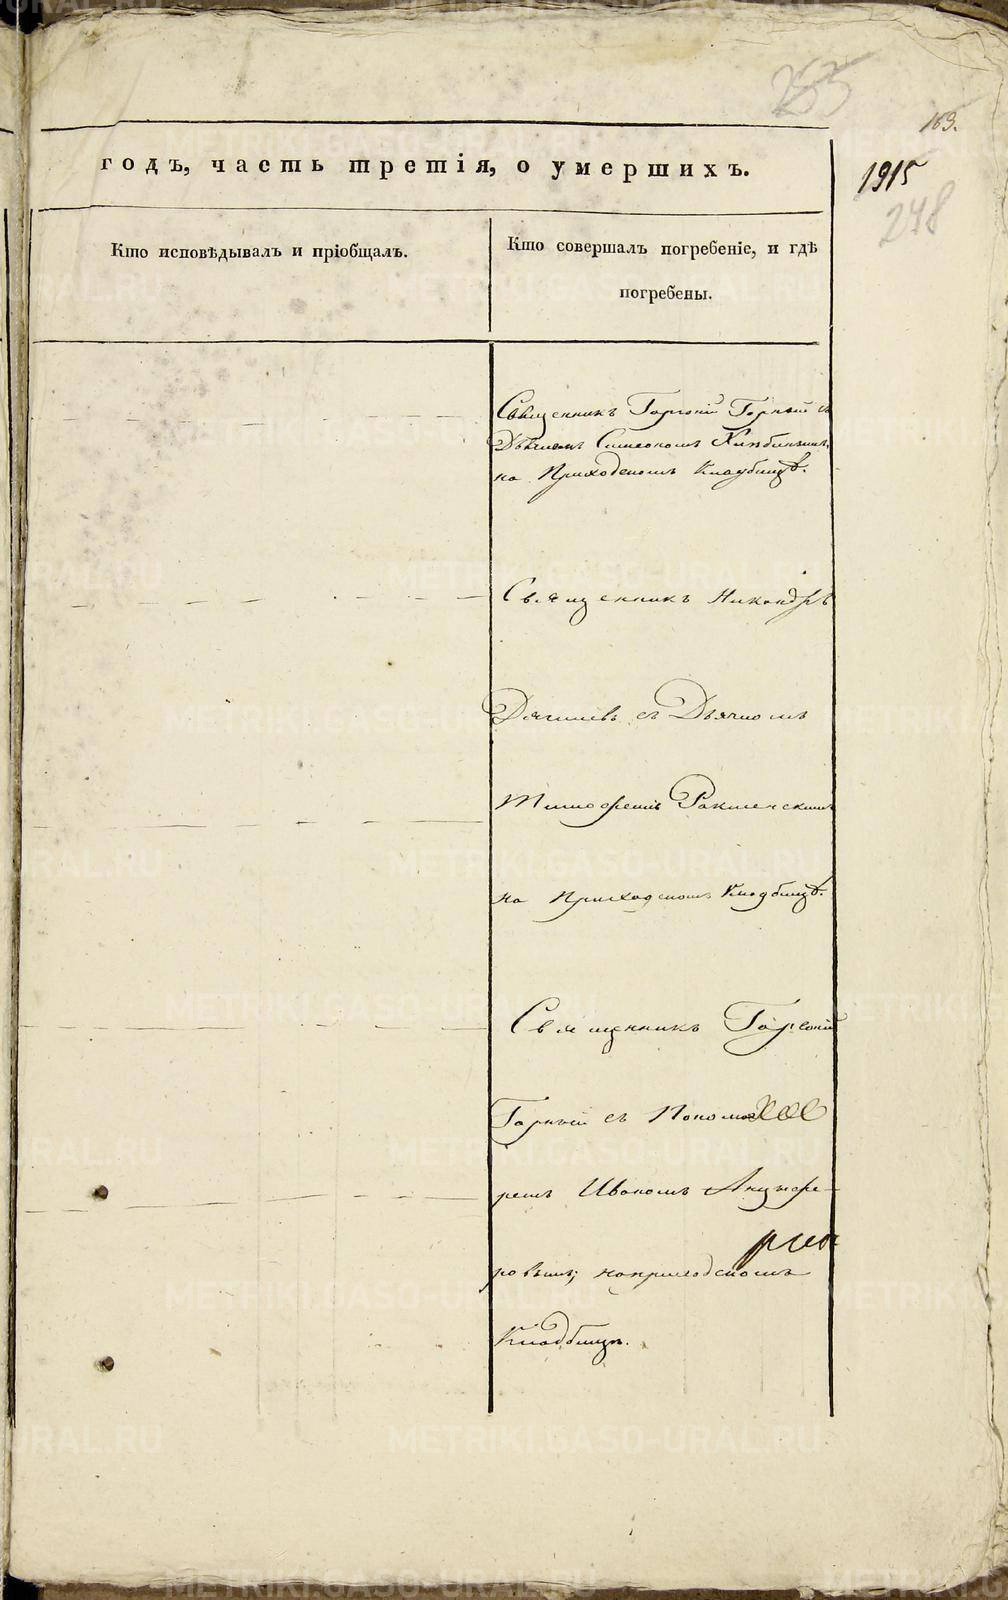 255
169.
годъ, часть третія, о умершихъ.
1915
248
Кто исповѣдывалъ и пріобщалъ.
Кто совершалъ погребеніе, и гдѣ
погребены.
Священникъ Горгоній Горный съ
Дьячкомъ Симеономъ
на Приходскомъ Кладбищѣ.
Священникъ Никандръ
съ Дьячкомъ
Тимофеемъ
на Приходскомъ Кладбищѣ.
Священникъ Горгоній
Горный съ Поно
ремъ Иваномъ
ровымъ, на приходскомъ
Кладбищѣ.
METRIKI.GASO-URAL.RU